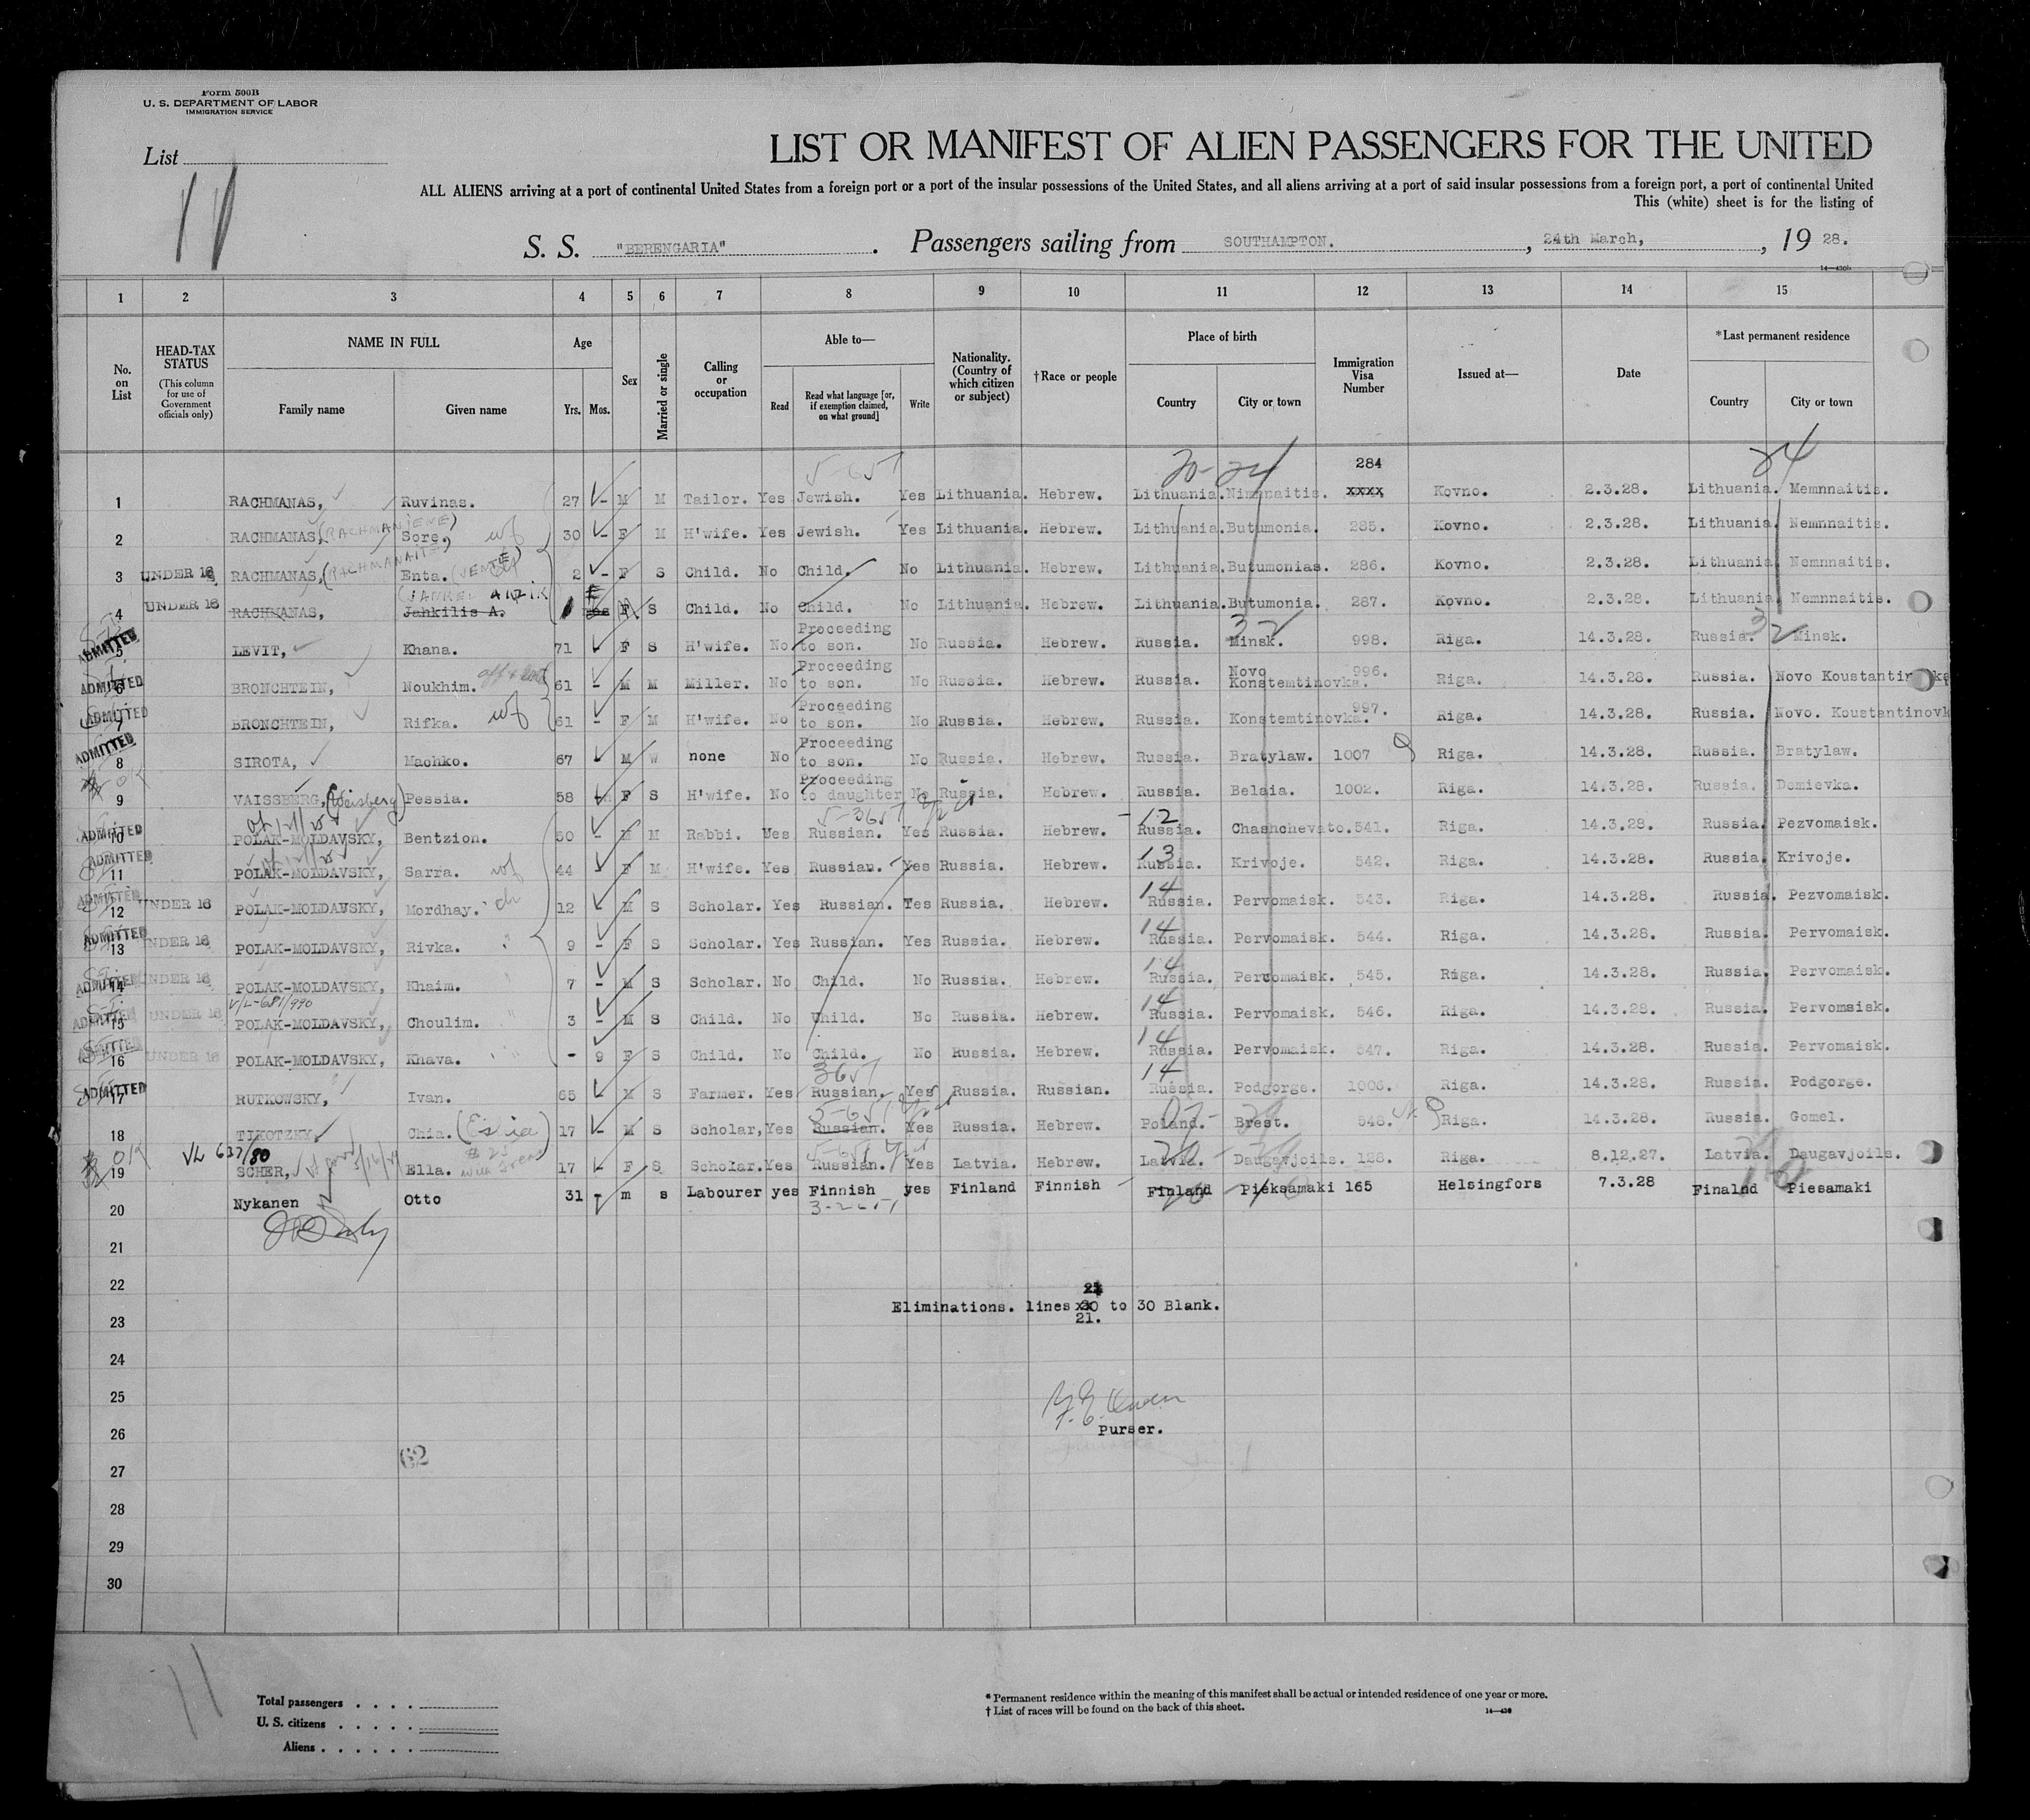 Form 500B
U. S. DEPARTMENT OF LABOR
IMMIGRATION SERVICE
List
11
LIST OR MANIFEST OF ALIEN PASSENGERS FOR THE UNITED
ALL ALIENS arriving at a port of continental United States from a foreign port or a port of the insular possessions of the United States, and all aliens arriving at a port of said insular possessions from a foreign port, a port of continental United
This (white) sheet is for the listing of
S. S. "BERENGARIA" . Passengers sailing from SOUTHAMPTON. , 24th March, , 19 28.
14—430b
1 2 3 4 5 6 7 8 9 10 11 12 13 14 15
No. on List
HEAD-TAX STATUS (This column for use of Government officials only)
NAME IN FULL Family name Given name
Age Yrs. Mos.
Sex
Married or single
Calling or occupation
Able to— Read Read what language [or, if exemption claimed, on what ground] Write
Nationality. (Country of which citizen or subject)
†Race or people
Place of birth Country City or town
Immigration Visa Number
Issued at—
Date
*Last permanent residence Country City or town
5-657 20-24 284 24
1 RACHMANAS, Ruvinas. 27 - M M Tailor. Yes Jewish. Yes Lithuania. Hebrew. Lithuania. Nimnnaitis. xxxx Kovno. 2.3.28. Lithuania. Memnnaitis.
2 RACHMANAS, (RACHMANIENE) Sore. wf 30 - F M H'wife. Yes Jewish. Yes Lithuania. Hebrew. Lithuania. Butumonia. 285. Kovno. 2.3.28. Lithuania. Nemnnaitis.
3 UNDER 16 RACHMANAS, (RACHMANAITE) Enta. (JENTE) 2 - F S Child. No Child. No Lithuania. Hebrew. Lithuania. Butumonias. 286. Kovno. 2.3.28. Lithuania. Nemnnaitis.
4 UNDER 16 RACHMANAS, Jahkilis A. F S Child. No Child. No Lithuania. Hebrew. Lithuania. Butumonia. 287. Kovno. 2.3.28. Lithuania. Nemnnaitis.
ADMITTED 5 LEVIT, Khana. 71 F S H'wife. No Proceeding to son. No Russia. Hebrew. Russia. 32 Minsk. 998. Riga. 14.3.28. Russia. 32 Minsk.
ADMITTED 6 BRONCHTEIN, Noukhim. 61 - M M Miller. No Proceeding to son. No Russia. Hebrew. Russia. Novo Konstemtinovka. 996. Riga. 14.3.28. Russia. Novo Koustantinovka
ADMITTED 7 BRONCHTEIN, Rifka. wf 61 - F M H'wife. No Proceeding to son. No Russia. Hebrew. Russia. Konstemtinovka. 997. Riga. 14.3.28. Russia. Novo. Koustantinovk
ADMITTED 8 SIROTA, Machko. 67 M W none No Proceeding to son. No Russia. Hebrew. Russia. Bratylaw. 1007 Riga. 14.3.28. Russia. Bratylaw.
9 VAISSBERG, (Weisberg) Pessia. 58 F S H'wife. No Proceeding to daughter No Russia. Hebrew. Russia. Belaia. 1002. Riga. 14.3.28. Russia. Domievka.
ADMITTED 10 POLAK-MOLDAVSKY, Bentzion. 50 - M M Rabbi. Yes Russian. Yes Russia. Hebrew. 12 Russia. Chashchevato. 541. Riga. 14.3.28. Russia. Pezvomaisk.
ADMITTED 11 POLAK-MOLDAVSKY, Sarra. wf 44 F M H'wife. Yes Russian. Yes Russia. Hebrew. 13 Russia. Krivoje. 542. Riga. 14.3.28. Russia. Krivoje.
ADMITTED 12 UNDER 16 POLAK-MOLDAVSKY, Mordhay. ch 12 M S Scholar. Yes Russian. Yes Russia. Hebrew. 14 Russia. Pervomaisk. 543. Riga. 14.3.28. Russia. Pezvomaisk.
ADMITTED 13 UNDER 16 POLAK-MOLDAVSKY, Rivka. " 9 - F S Scholar. Yes Russian. Yes Russia. Hebrew. 14 Russia. Pervomaisk. 544. Riga. 14.3.28. Russia. Pervomaisk.
ADMITTED 14 UNDER 16 POLAK-MOLDAVSKY, Khaim. " 7 - M S Scholar. No Child. No Russia. Hebrew. 14 Russia. Percomaisk. 545. Riga. 14.3.28. Russia. Pervomaisk.
V/L-681/990
ADMITTED 15 UNDER 16 POLAK-MOLDAVSKY, Choulim. " 3 - M S Child. No Child. No Russia. Hebrew. 14 Russia. Pervomaisk. 546. Riga. 14.3.28. Russia. Pervomaisk.
ADMITTED 16 UNDER 16 POLAK-MOLDAVSKY, Khava. " - 9 F S Child. No Child. No Russia. Hebrew. 14 Russia. Pervomaisk. 547. Riga. 14.3.28. Russia. Pervomaisk.
ADMITTED 17 RUTKOWSKY, Ivan. 65 M S Farmer. Yes Russian. Yes Russia. Russian. 14 Russia. Podgorge. 1006. Riga. 14.3.28. Russia. Podgorge.
18 TIKOTZKY Chia. 17 - M S Scholar, Yes Russian. Yes Russia. Hebrew. Poland. Brest. 548. Riga. 14.3.28. Russia. Gomel.
19 SCHER, Ella. 17 - F S Scholar. Yes Russian. Yes Latvia. Hebrew. Latvia. Daugavjoils. 128. Riga. 8.12.27. Latvia. Daugavjoils.
20 Nykanen Otto 31 - m s Labourer yes Finnish yes Finland Finnish Finland Pieksamaki 165 Helsingfors 7.3.28 Finalnd Piesamaki
21
22
Eliminations. lines xx to 30 Blank.
21.
23
24
25
26
Purser.
62
27
28
29
30
11
Total passengers . . . .
U. S. citizens . . . . .
Aliens . . . . . .
* Permanent residence within the meaning of this manifest shall be actual or intended residence of one year or more.
† List of races will be found on the back of this sheet.
14—430